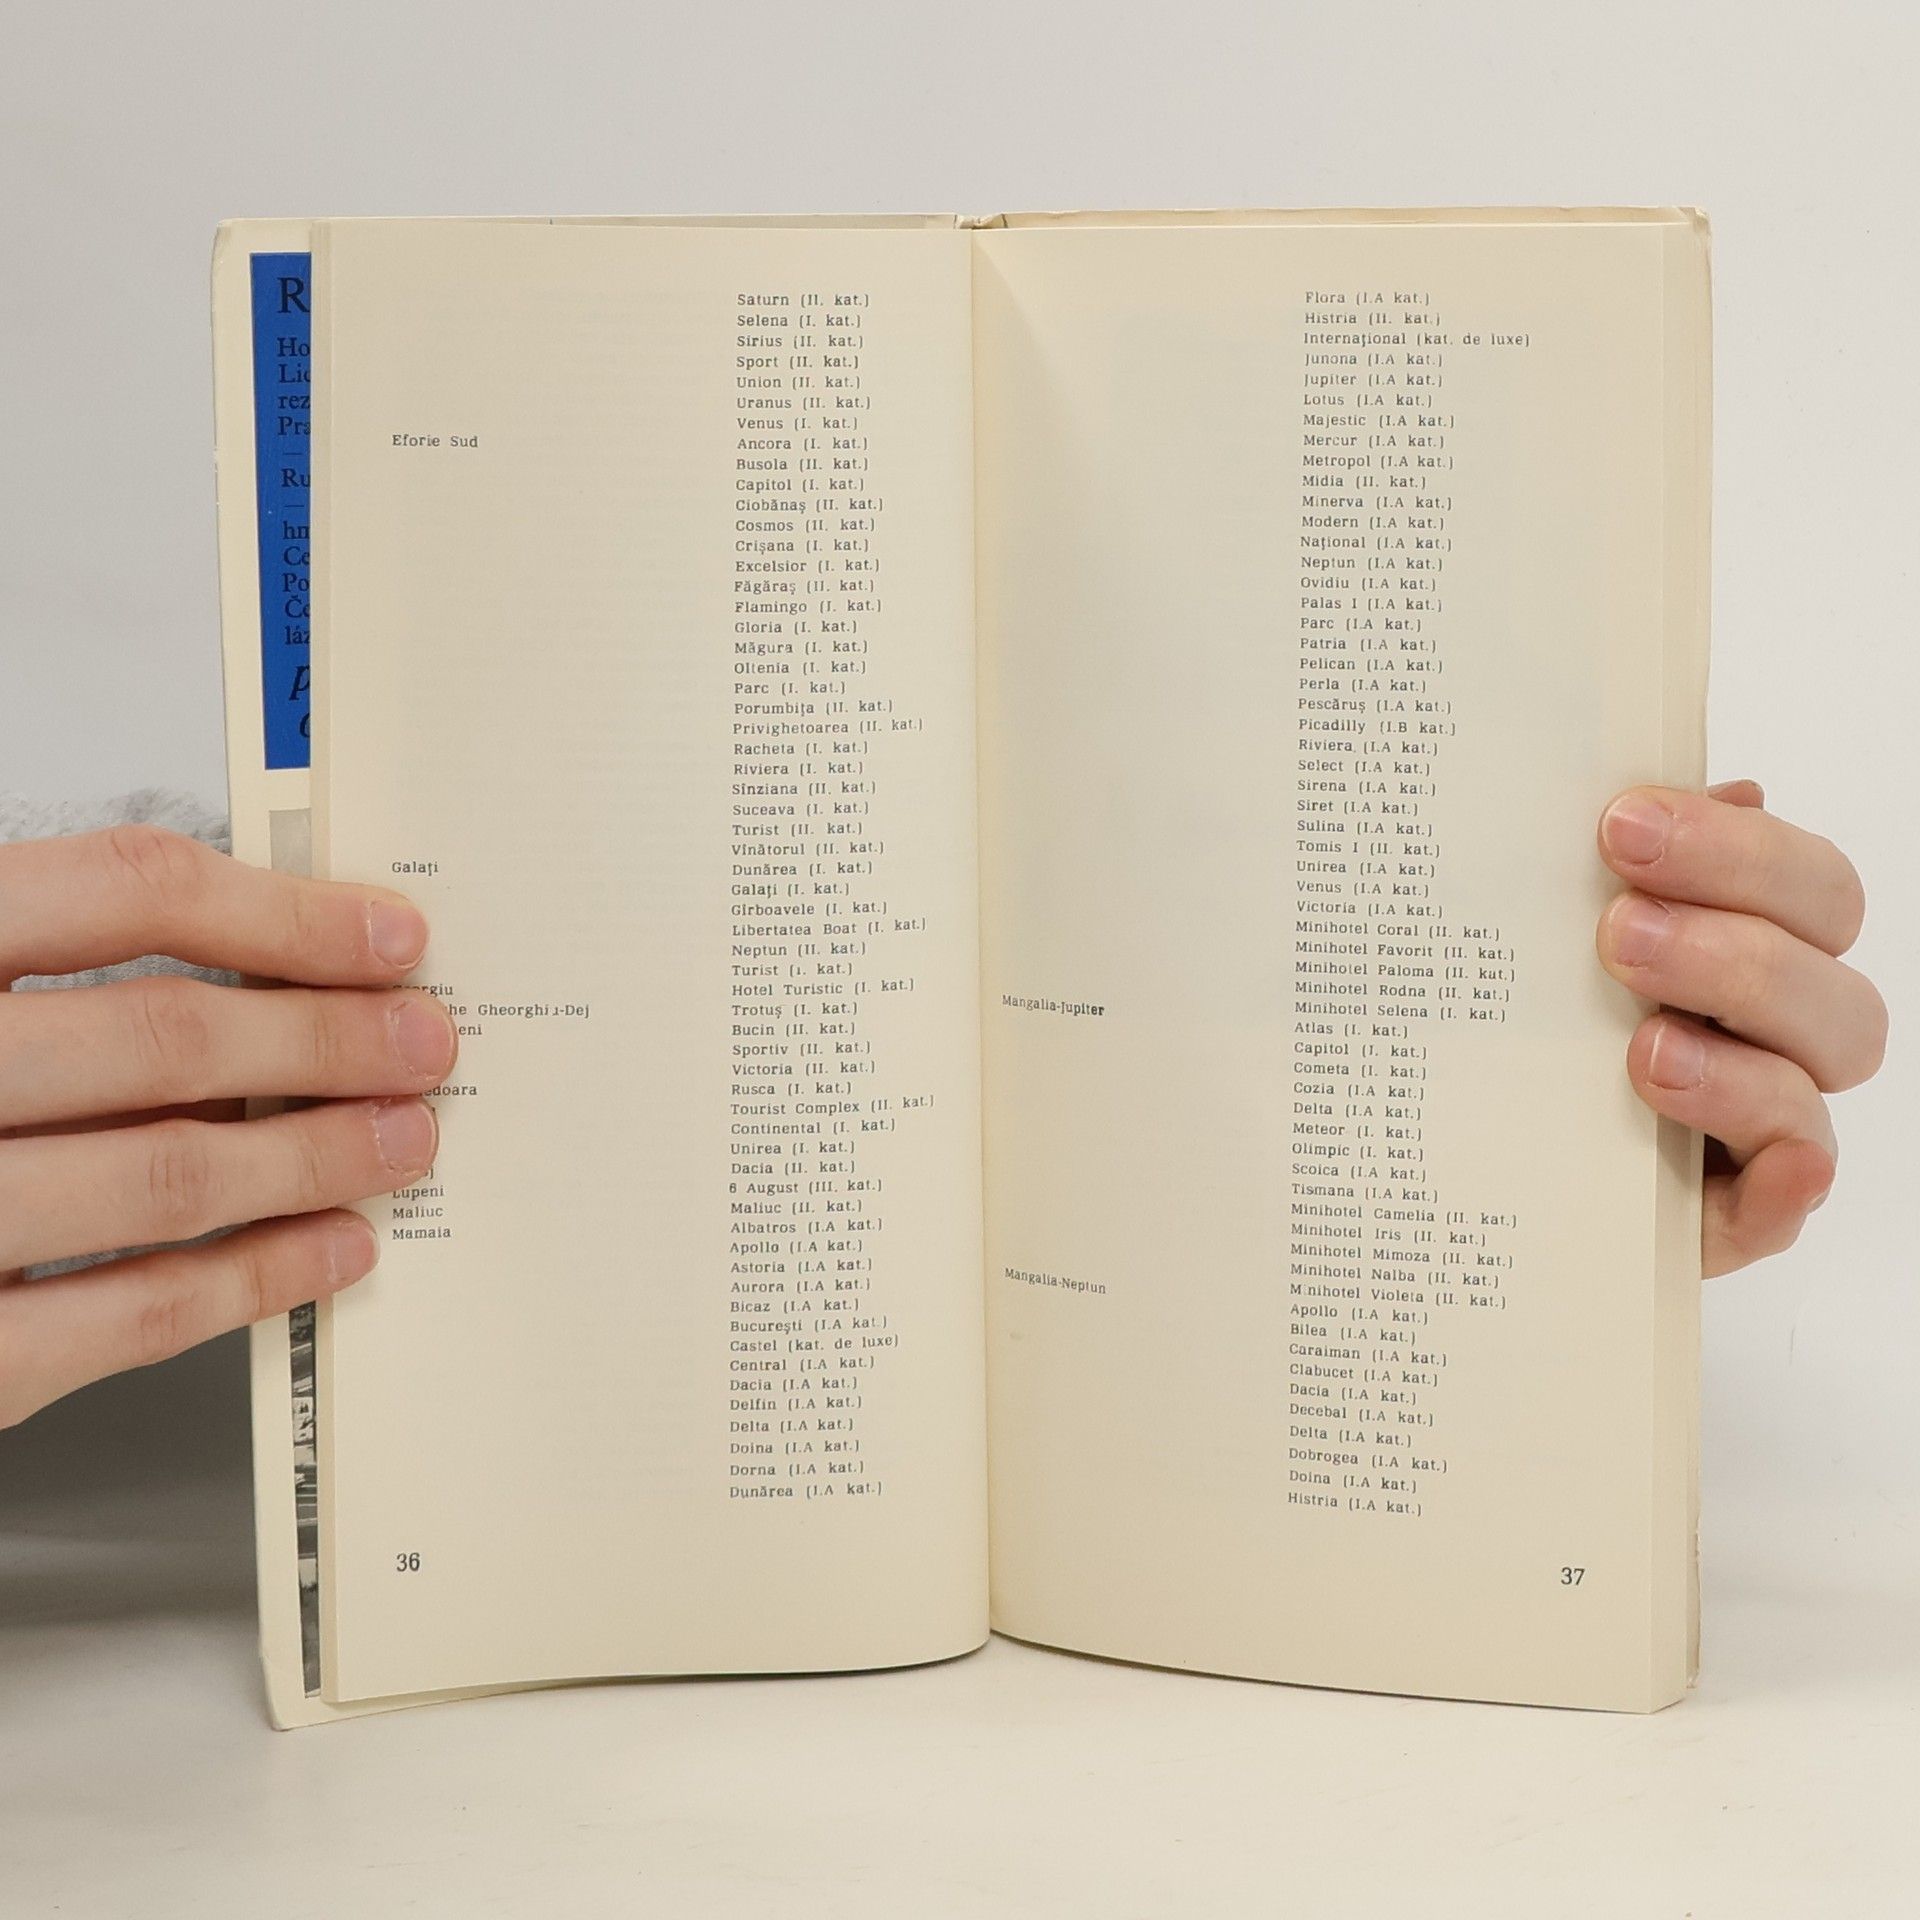 R
Ho
Lic
rez
Pra
—
Ru
—
hm
Ce
Po
Če
láz
p
Saturn (II. kat.)
Selena (I. kat.)
Sirius (II. kat.)
Sport (II. kat.)
Union (II. kat.)
Uranus (II. kat.)
Venus (I. kat.)
Eforie Sud Ancora (I. kat.)
Busola (II. kat.)
Capitol (I. kat.)
Ciobănaş (II. kat.)
Cosmos (II. kat.)
Crişana (I. kat.)
Excelsior (I. kat.)
Făgăraş (II. kat.)
Flamingo (I. kat.)
Gloria (I. kat.)
Măgura (I. kat.)
Oltenia (I. kat.)
Parc (I. kat.)
Porumbiţa (II. kat.)
Privighetoarea (II. kat.)
Racheta (I. kat.)
Riviera (I. kat.)
Sînziana (II. kat.)
Suceava (I. kat.)
Turist (II. kat.)
Vînătorul (II. kat.)
Galaţi Dunărea (I. kat.)
Galaţi (I. kat.)
Gîrboavele (I. kat.)
Libertatea Boat (I. kat.)
Neptun (II. kat.)
Turist (I. kat.)
rgiu Hotel Turistic (I. kat.)
he Gheorghiu-Dej Trotuş (I. kat.)
eni Bucin (II. kat.)
Sportiv (II. kat.)
Victoria (II. kat.)
edoara Rusca (I. kat.)
Tourist Complex (II. kat.)
Continental (I. kat.)
Unirea (I. kat.)
Dacia (II. kat.)
Lupeni 6 August (III. kat.)
Maliuc Maliuc (II. kat.)
Mamaia Albatros (I.A kat.)
Apollo (I.A kat.)
Astoria (I.A kat.)
Aurora (I.A kat.)
Bicaz (I.A kat.)
Bucureşti (I.A kat.)
Castel (kat. de luxe)
Central (I.A kat.)
Dacia (I.A kat.)
Delfin (I.A kat.)
Delta (I.A kat.)
Doina (I.A kat.)
Dorna (I.A kat.)
Dunărea (I.A kat.)
36
Flora (I.A kat.)
Histria (II. kat.)
Internaţional (kat. de luxe)
Junona (I.A kat.)
Jupiter (I.A kat.)
Lotus (I.A kat.)
Majestic (I.A kat.)
Mercur (I.A kat.)
Metropol (I.A kat.)
Midia (II. kat.)
Minerva (I.A kat.)
Modern (I.A kat.)
Naţional (I.A kat.)
Neptun (I.A kat.)
Ovidiu (I.A kat.)
Palas I (I.A kat.)
Parc (I.A kat.)
Patria (I.A kat.)
Pelican (I.A kat.)
Perla (I.A kat.)
Pescăruş (I.A kat.)
Picadilly (I.B kat.)
Riviera, (I.A kat.)
Select (I.A kat.)
Sirena (I.A kat.)
Siret (I.A kat.)
Sulina (I.A kat.)
Tomis I (II. kat.)
Unirea (I.A kat.)
Venus (I.A kat.)
Victoria (I.A kat.)
Minihotel Coral (II. kat.)
Minihotel Favorit (II. kat.)
Minihotel Paloma (II. kat.)
Minihotel Rodna (II. kat.)
Minihotel Selena (I. kat.)
Mangalia-Jupiter Atlas (I. kat.)
Capitol (I. kat.)
Cometa (I. kat.)
Cozia (I.A kat.)
Delta (I.A kat.)
Meteor (I. kat.)
Olimpic (I. kat.)
Scoica (I.A kat.)
Tismana (I.A kat.)
Minihotel Camelia (II. kat.)
Minihotel Iris (II. kat.)
Minihotel Mimoza (II. kat.)
Minihotel Nalba (II. kat.)
Minihotel Violeta (II. kat.)
Mangalia-Neptun Apollo (I.A kat.)
Bîlea (I.A kat.)
Caraiman (I.A kat.)
Clabucet (I.A kat.)
Dacia (I.A kat.)
Decebal (I.A kat.)
Delta (I.A kat.)
Dobrogea (I.A kat.)
Doina (I.A kat.)
Histria (I.A kat.)
37